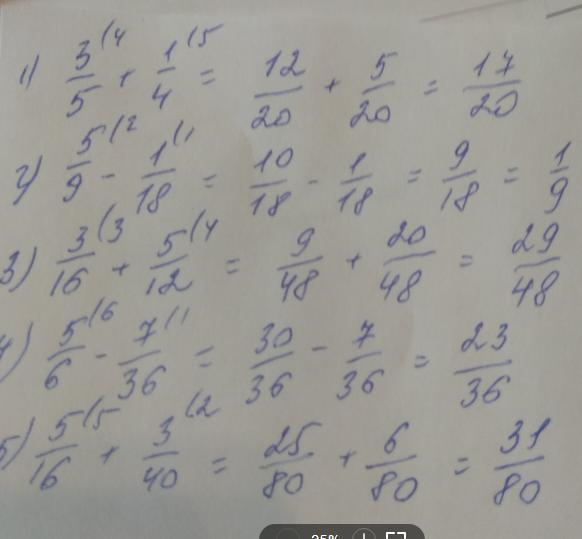 1) 3/5 (4 + 1/4 (5 = 12/20 + 5/20 = 17/20
2) 5/9 (2 - 1/18 (1 = 10/18 - 1/18 = 9/18 = 1/9
3) 3/16 (3 + 5/12 (4 = 9/48 + 20/48 = 29/48
4) 5/6 (6 - 7/36 (1 = 30/36 - 7/36 = 23/36
5) 5/16 (5 + 3/40 (2 = 25/80 + 6/80 = 31/80